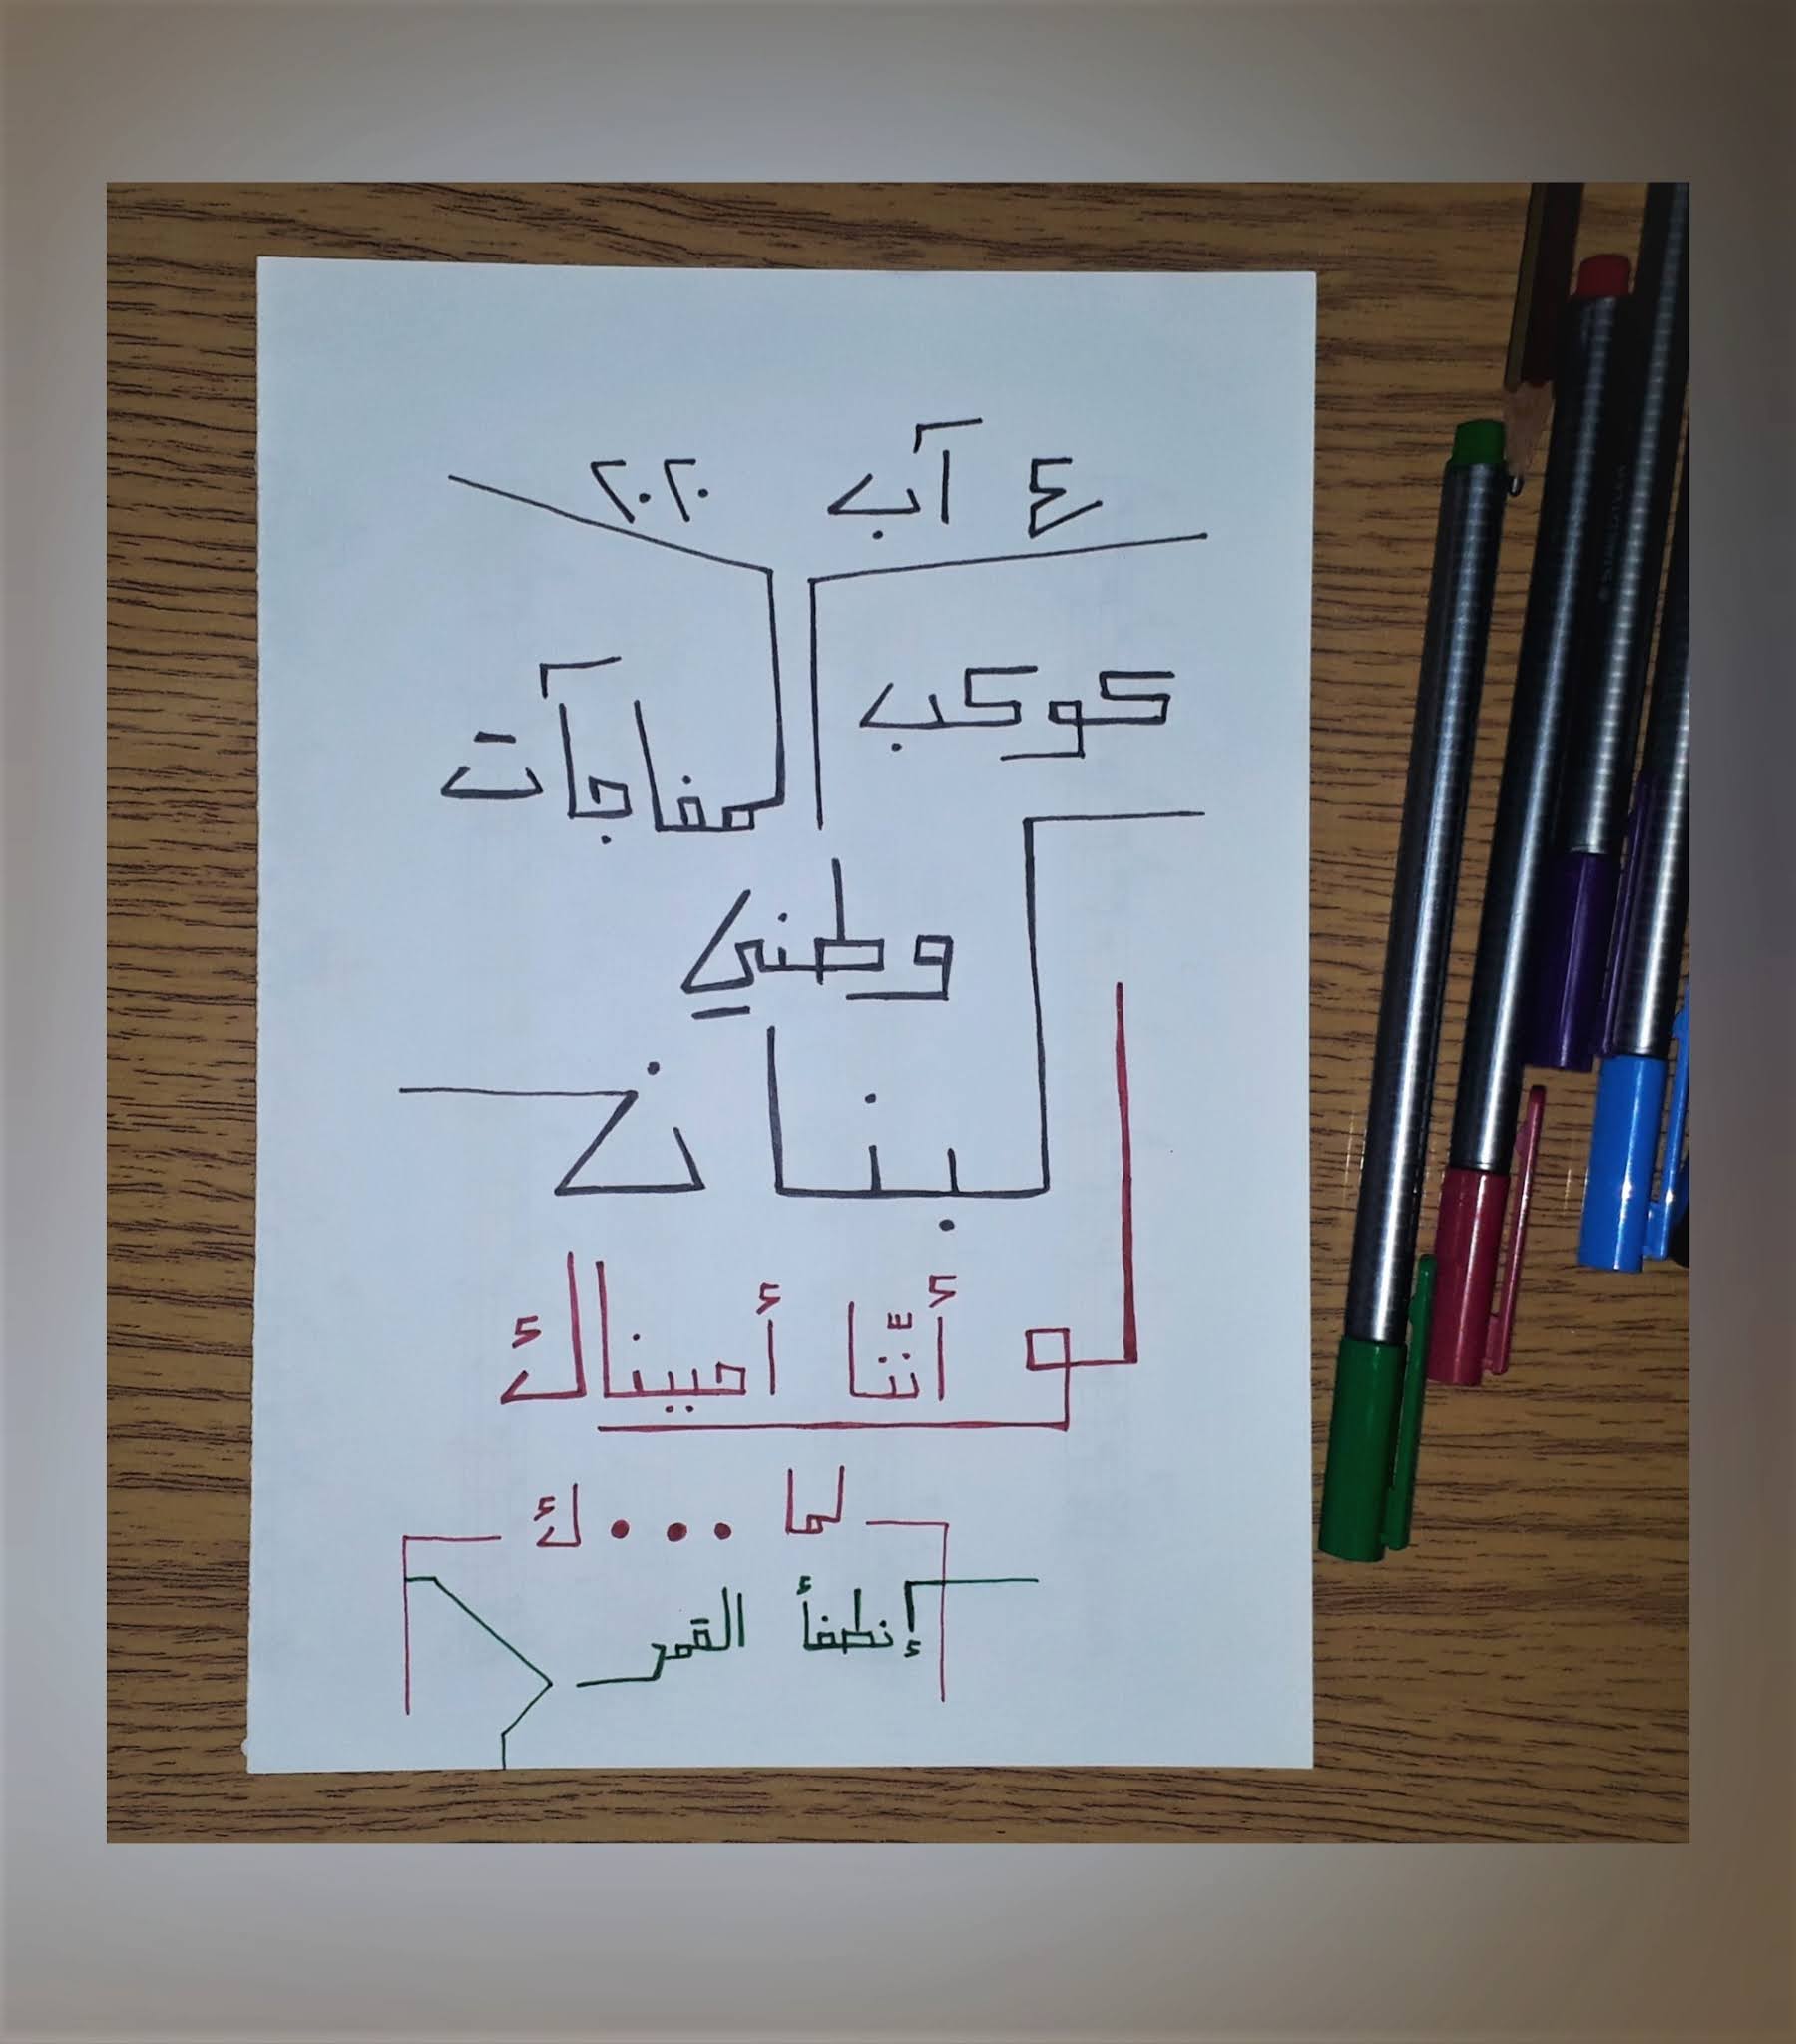 ٤ آب ٢٠٢٠
كوكب مفاجآت
وطني
لبنان
ولو أنّنا أحببناك
لما . . . ك
إنطفأ القمر